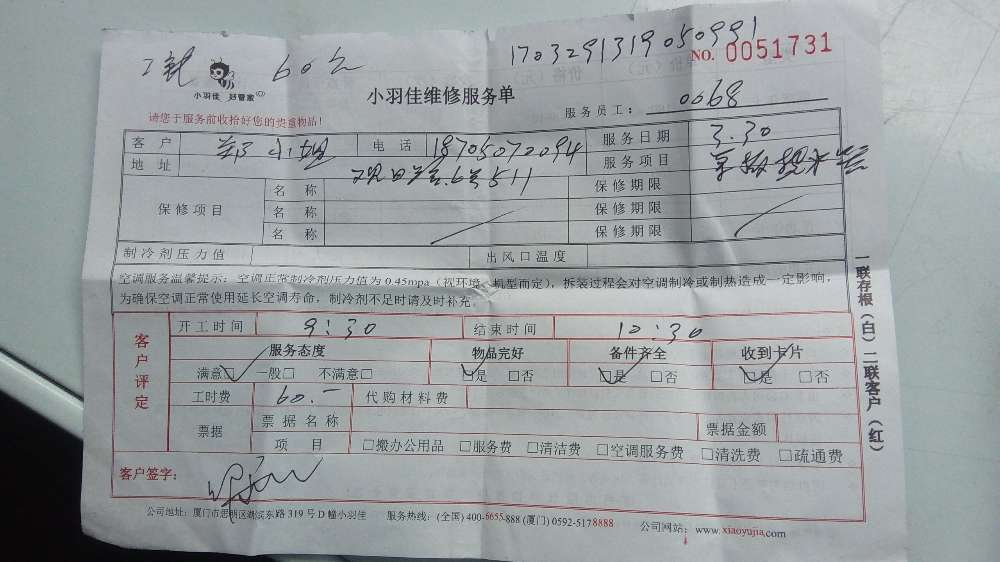 1703291319050991
60元
NO. 0051731
小羽佳 好管家
小羽佳维修服务单
服务员工: 0068
请您于服务前收拾好您的贵重物品!
客户 小姐 电话 18705072094 服务日期 3.30
地址 6号511 服务项目
保修项目 名称 保修期限
名称 保修期限
名称 保修期限
制冷剂压力值 出风口温度
空调服务温馨提示: 空调正常制冷剂压力值为0.45mpa(视环境、机型而定), 拆装过程会对空调制冷或制热造成一定影响,
为确保空调正常使用延长空调寿命, 制冷剂不足时请及时补充。
客户评定
开工时间 9:30 结束时间 10:30
服务态度 物品完好 备件齐全 收到卡片
满意□ 一般□ 不满意□ □是 □否 □是 □否 □是 □否
工时费 60.- 代购材料费
票据 票据名称 票据金额
项目 □搬办公用品 □服务费 □清洁费 □空调服务费 □清洗费 □疏通费
客户签字:
公司地址: 厦门市思明区湖滨东路319号D幢小羽佳 服务热线: (全国) 400-6655-888 (厦门) 0592-5178888 公司网站: www.xiaoyujia.com
一联存根(白) 二联客户(红)